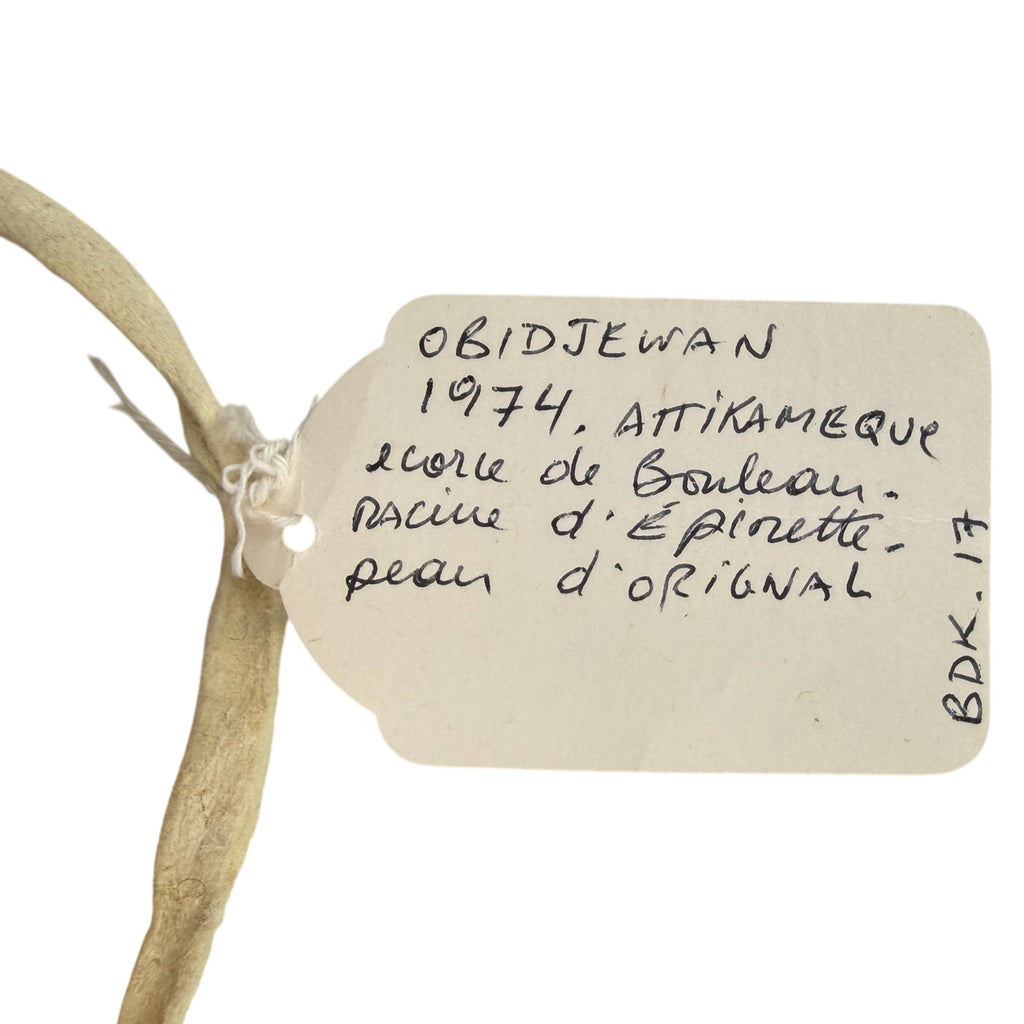 OBIDJEWAN
1974. ATTiKAMEQUe
ecorce de Bouleau.
RAcine d'Épinette.
peau d'ORiGNAL
BDK. 17